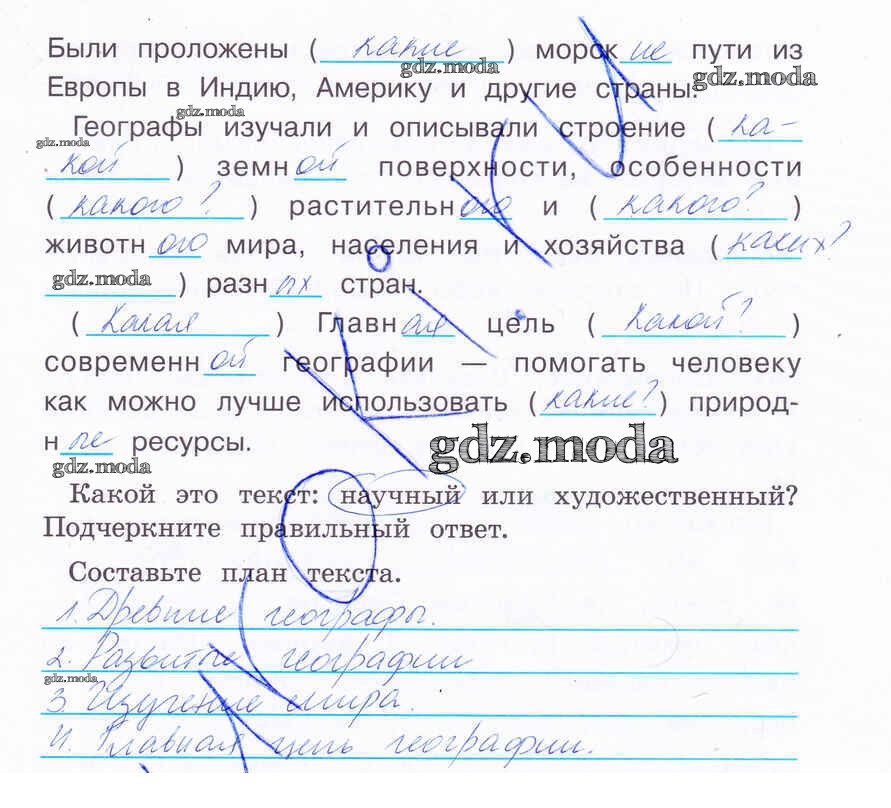 Были проложены ( какие ) морские пути из
gdz.moda gdz.moda
Европы в Индию, Америку и другие страны.
gdz.moda
Географы изучали и описывали строение ( ка-
gdz.moda
кой ) земной поверхности, особенности
( какого? ) растительного и ( какого? )
животного мира, населения и хозяйства ( каких?
gdz.moda ) разных стран.
( Какая ) Главная цель ( какой? )
современной географии — помогать человеку
как можно лучше использовать ( какие? ) природ-
ные ресурсы.
gdz.moda
gdz.moda
Какой это текст: научный или художественный?
Подчеркните правильный ответ.
Составьте план текста.
1. Древние географы.
2. Развитие географии
gdz.moda
3. Изучение мира.
4. Главная цель географии.